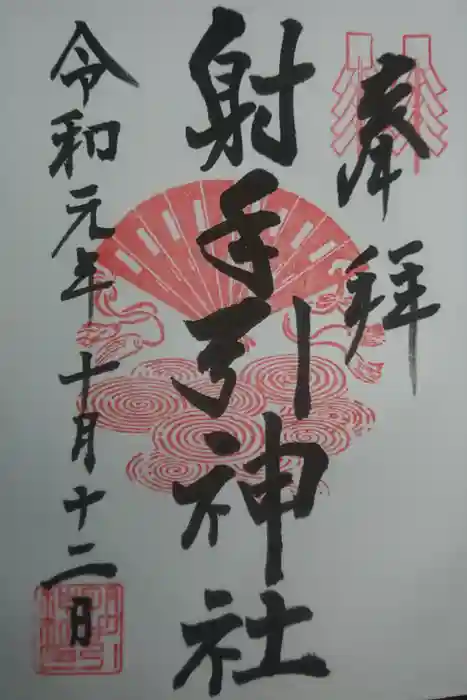 奉拝
射手引神社
令和元年十月十二日